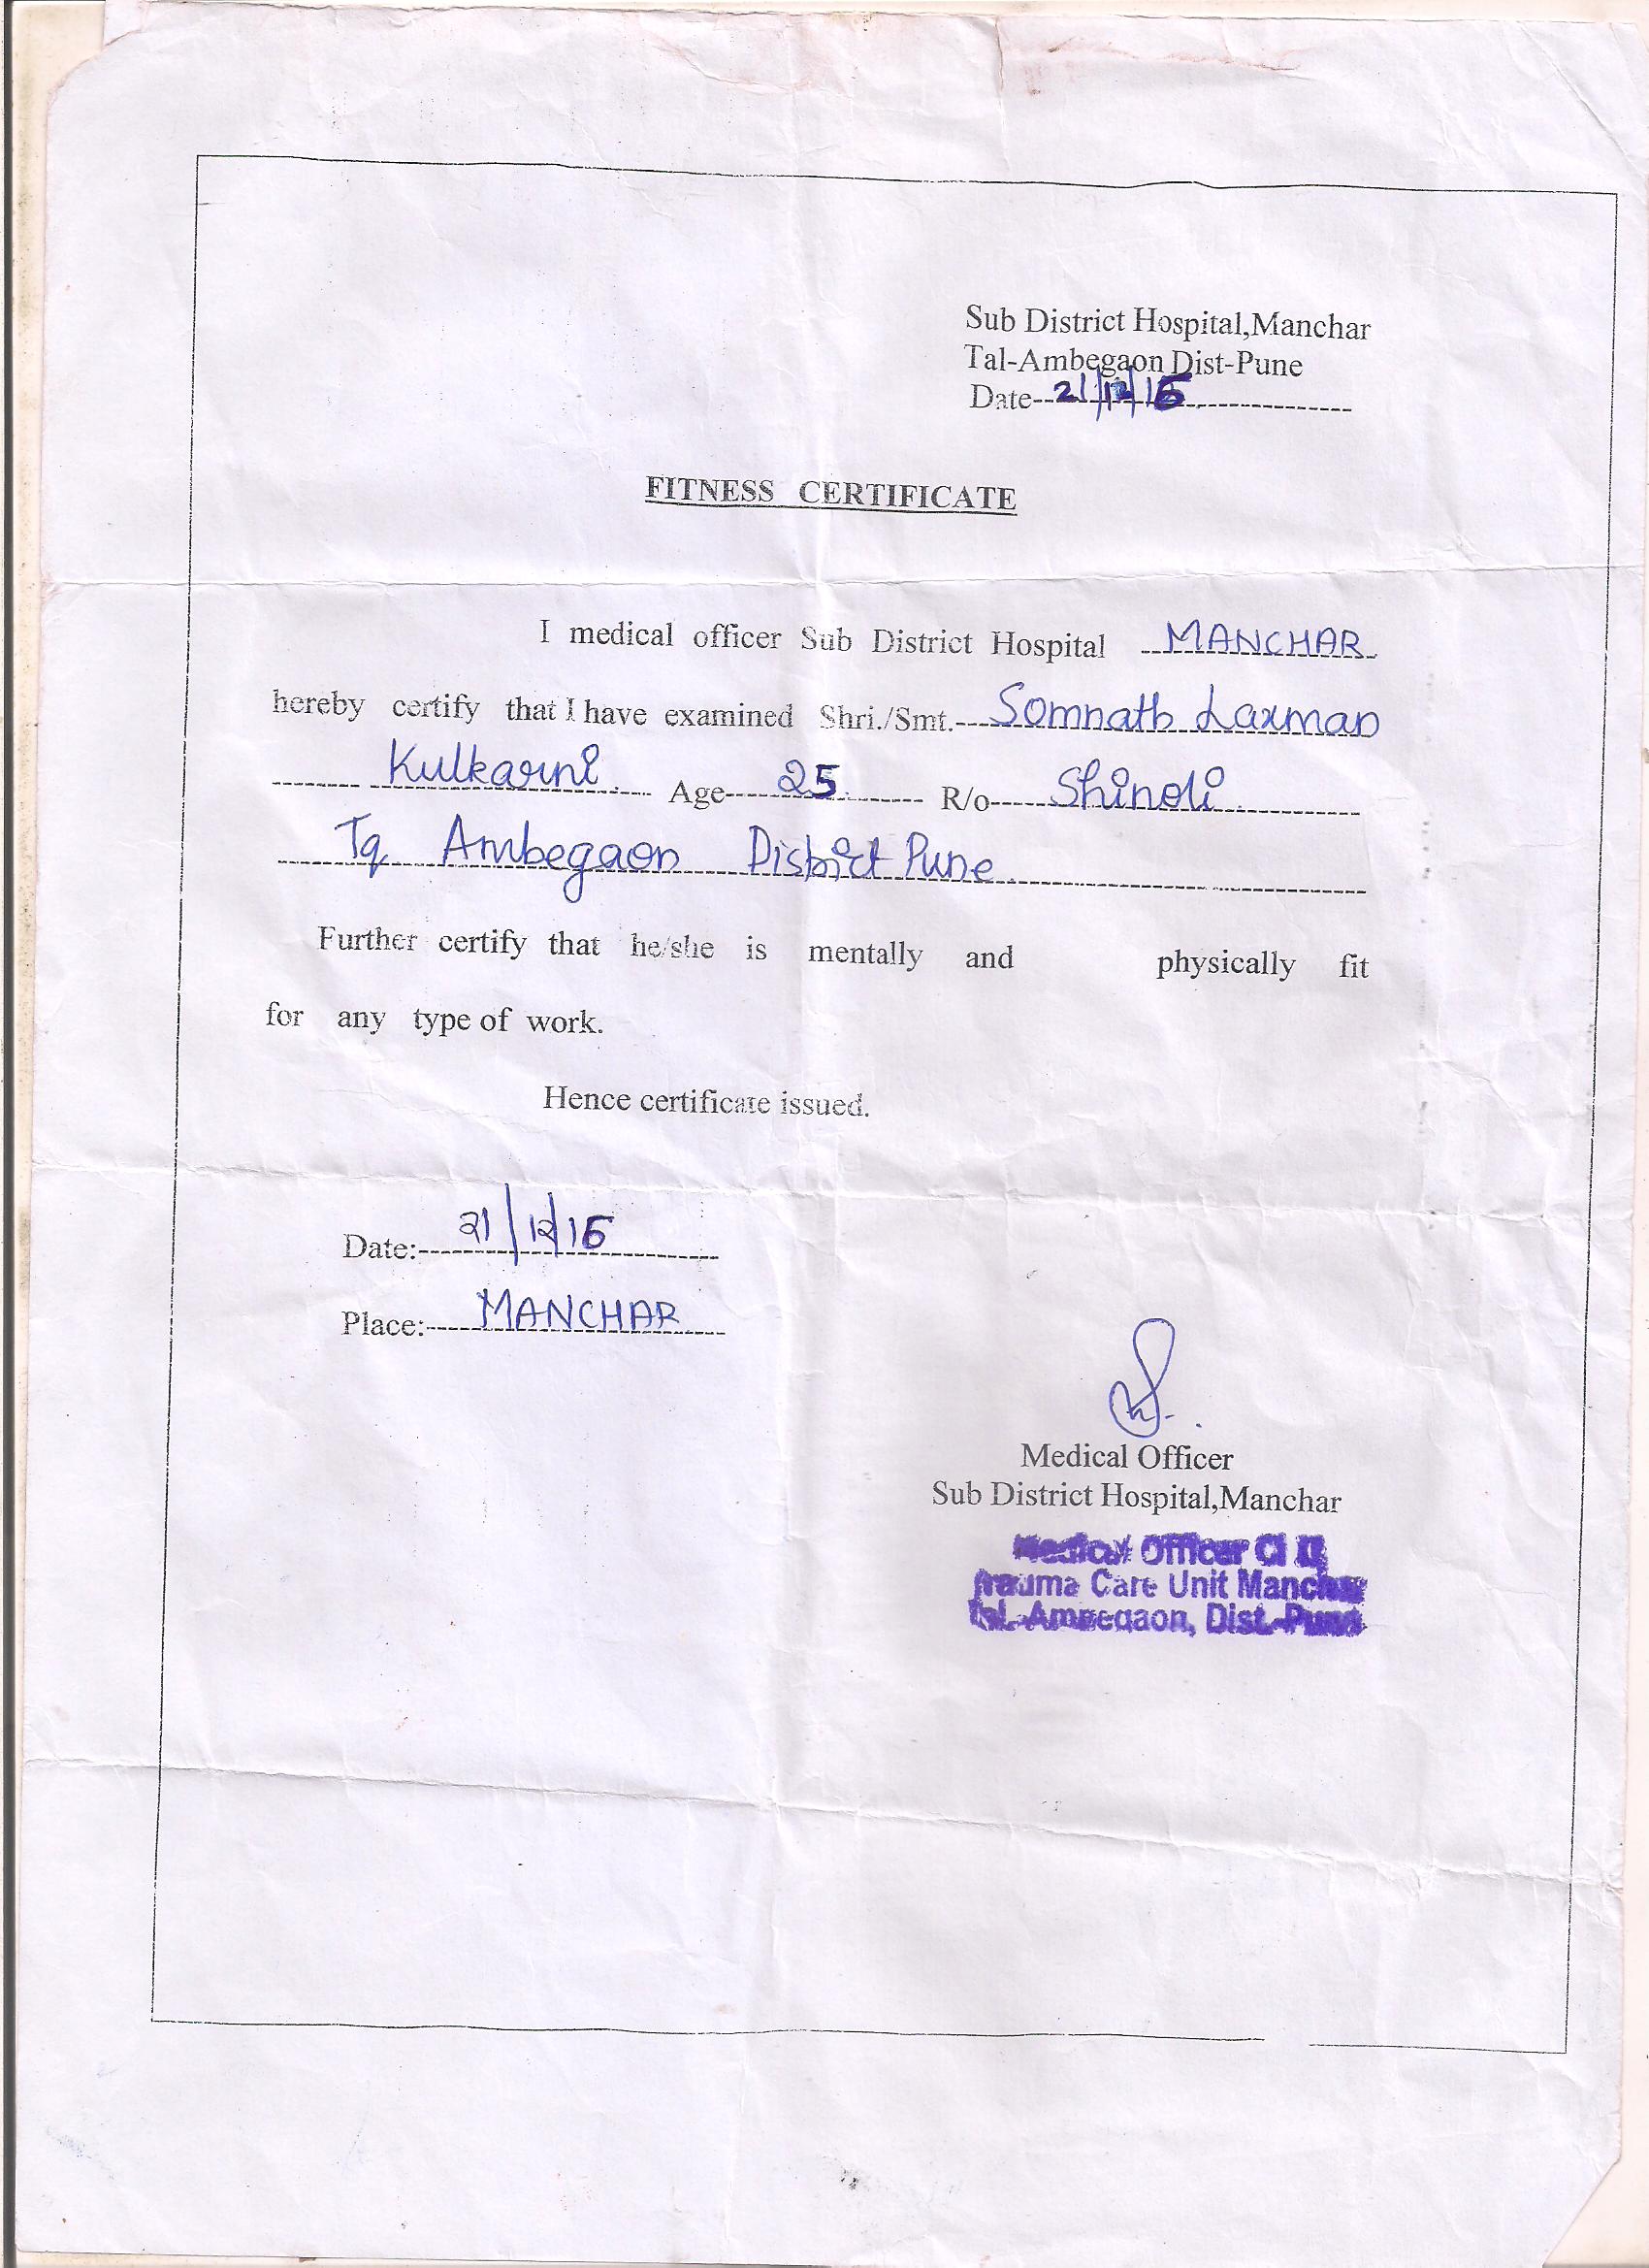 Sub District Hospital,Manchar
Tal-Ambegaon Dist-Pune
Date--21/12/16
FITNESS CERTIFICATE
I medical officer Sub District Hospital MANCHAR
hereby certify that I have examined Shri./Smt. Somnath Laxman
Kulkarni Age 25 R/o Shinoli
Tq Ambegaon District Pune
Further certify that he/she is mentally and physically fit
for any type of work.
Hence certificate issued.
Date: 21/12/16
Place: MANCHAR
Medical Officer
Sub District Hospital,Manchar
Medical Officer Cl II
Trauma Care Unit Manchar
Tal.-Ambegaon, Dist.-Pune